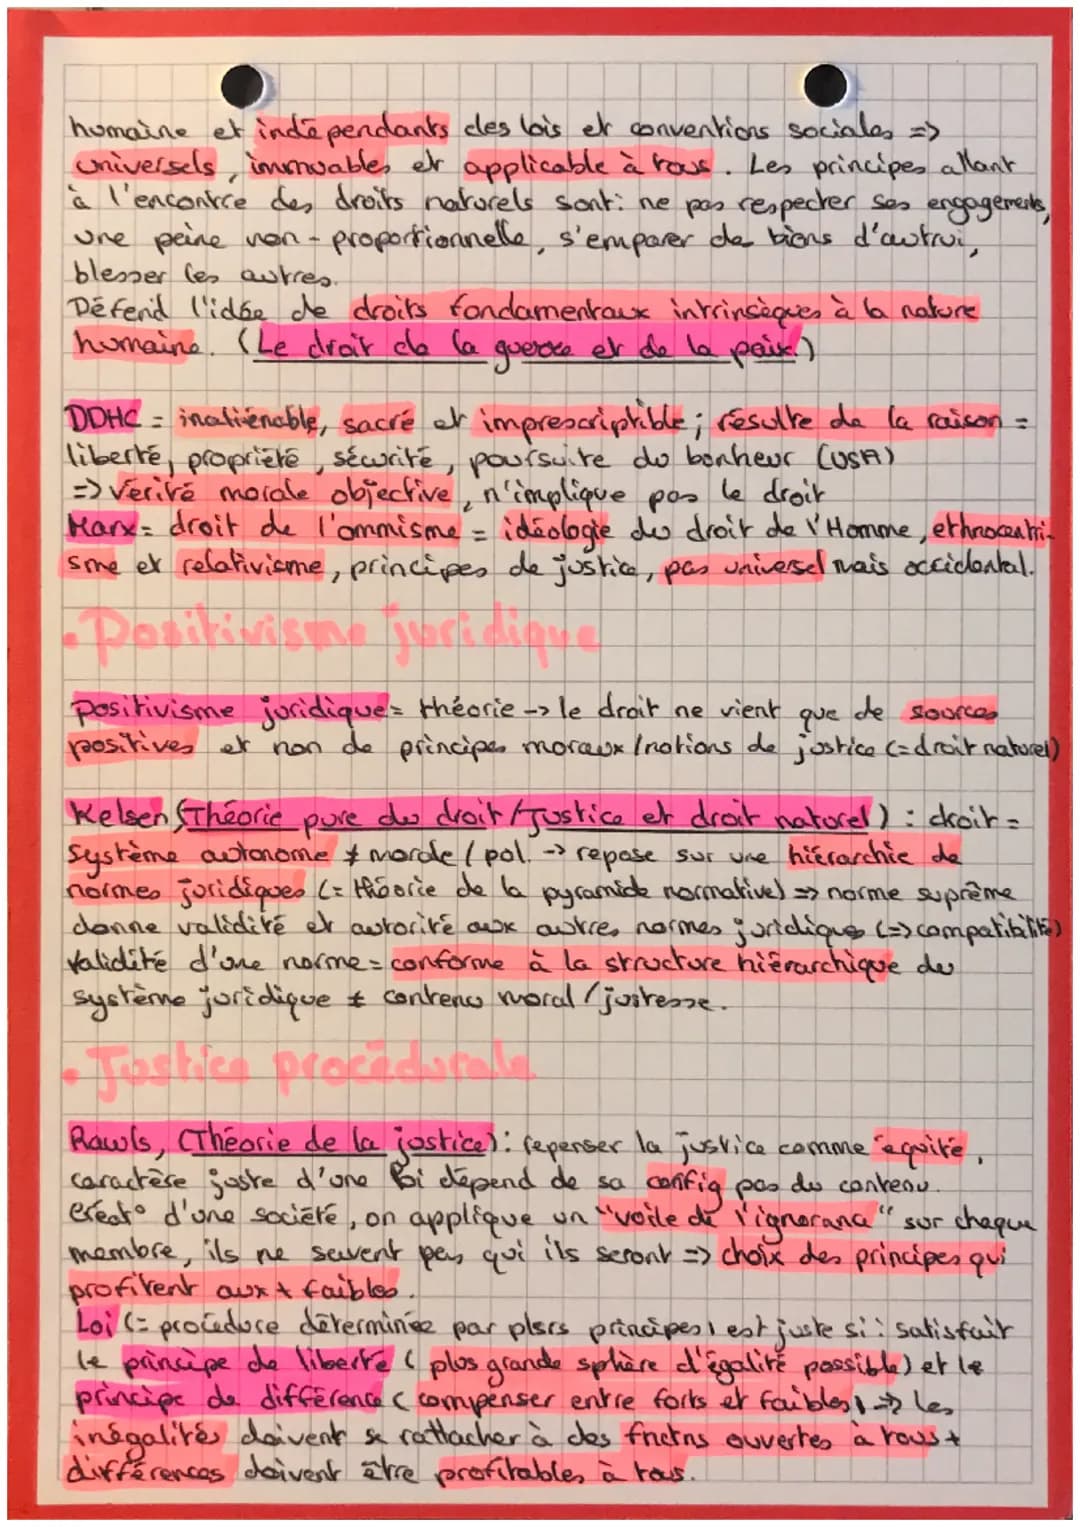 humaine et indépendants des lois et conventions sociales =>
universels, immuables et applicable à tous. Les principes allant
à l'encontre des droits naturels sont: ne pas respecter ses engagements,
une peine non-proportionnelle, s'emparer de biens d'autrui,
blesser les autres.
Défend l'idée de droits fondamentaux intrinsèques à la nature
humaine. (Le droit de la guerre et de la paix.)
DDHC = inaliénable, sacré et imprescriptible; résulte de la raison =
liberté, propriété, sécurité, poursuite du bonheur (USA)
=> Vérité morale objective, n'implique pas le droit
Marx = droit de l'ommisme = idéologie du droit de l'Homme, ethnocentri-
sme et relativisme, principes de justice, pas universel mais occidental.
• Positivisme juridique
Positivisme juridique = théorie -> le droit ne vient que de sources
positives et non de principes moraux/notions de justice (= droit naturel)
Kelsen (Théorie pure du droit/Justice et droit naturel) : droit =
système autonome ≠ morale/pol. -> repose sur une hiérarchie de
normes juridiques (= théorie de la pyramide normative) => norme suprême
donne validité et autorité aux autres normes juridiques (=> compatibilité)
Validité d'une norme = conforme à la structure hiérarchique du
système juridique ≠ contenu moral/justesse.
• Justice procédurale
Rawls, (Théorie de la justice) : repenser la justice comme équité,
caractère juste d'une loi dépend de sa config pas du contenu.
Créat° d'une société, on applique un "voile de l'ignorance" sur chaque
membre, ils ne savent pas qui ils seront => choix des principes qui
profitent aux + faibles.
Loi (= procédure déterminée par plsrs principes) est juste si: satisfait
le principe de liberté (plus grande sphère d'égalité possible) et le
principe de différence (compenser entre forts et faibles) => les
inégalités doivent se rattacher à des fnctns ouvertes à tous +
différences doivent être profitables à tous.